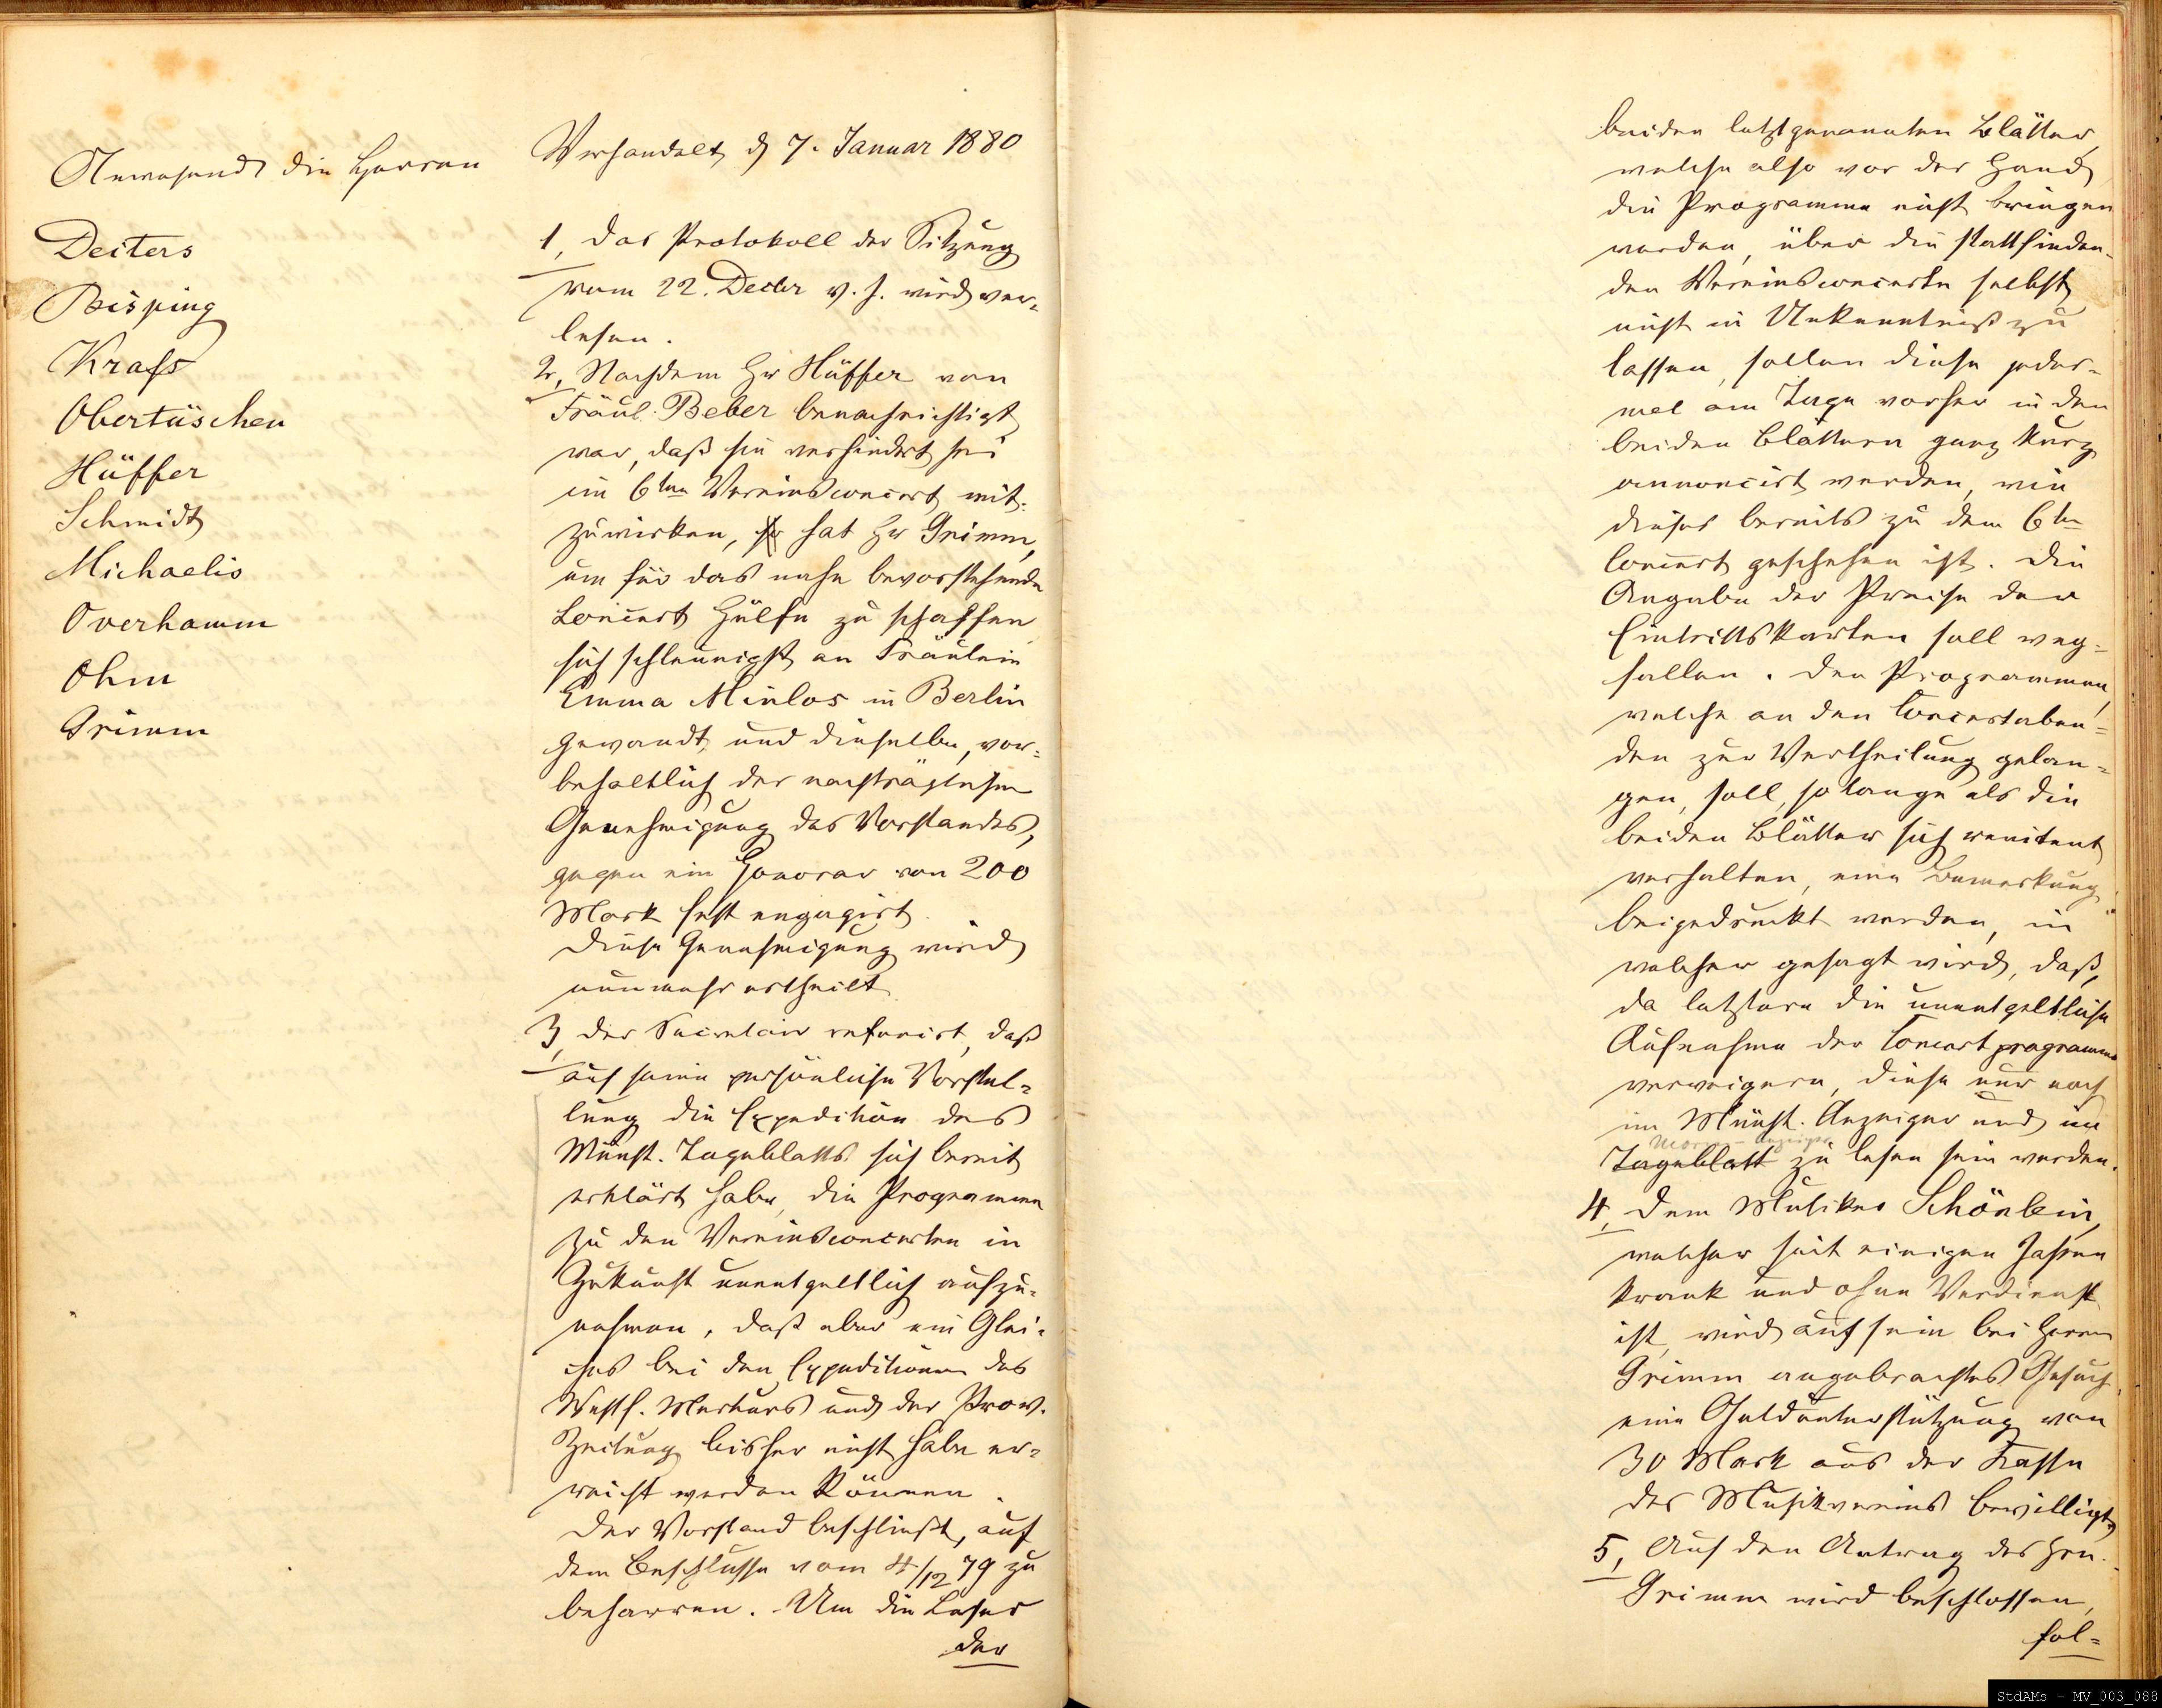 Anwesend die Herren
Deiters
Bisping
Krass
Obertüschen
Hüffer
Schmidt
Michaelis
Overhamm
Ohm
Grimm
Verhandelt, d 7. Januar 1880
1, Das Protokoll der Sitzung
vom 22. Decbr v. J. wird ver-
lesen.
2, Nachdem Hr Hüffer von
Fräul. Beber benachrichtigt
war, daß sie verhindert sei
im 6ten Vereinsconcert mit-
zuwirken, so hat Hr Grimm,
um für das nahe bevorstehende
Concert Hülfe zu schaffen
sich schleunigst an Fräulein
Emma Minlos in Berlin
gewandt, und dieselbe, vor-
behaltlich der nachträglichen
Genehmigung des Vorstandes,
gegen ein Honorar von 200
Mark fest engagirt.
Diese Genehmigung wird
nunmehr ertheilt.
3, Der Secretair referirt, daß
auf seine persönliche Vorstel-
lung die Expedition des
Münst. Tageblatts sich bereit
erklärt habe, die Programme
zu den Vereinsconcerten in
Zukunft unentgeltlich aufzu-
nehmen, daß aber ein Glei-
ches bei den Expeditionen des
Westf. Merkurs und der Prov.
Zeitung bisher nicht habe er-
reicht werden können.
Der Vorstand beschließt, auf
dem Beschlusse vom 4/12 79 zu
beharren. Um die Leser
der
beiden letztgenannten Blätter,
welche also vor der Hand
die Programme nicht bringen
werden, über die stattfinden-
den Vereinsconcerte selbst
nicht in Unkenntniß zu
lassen, sollen diese jedes-
mal am Tage vorher in den
beiden Blättern ganz kurz
annoncirt werden, wie
dieses bereits zu dem 6ten
Concert geschehen ist. Die
Angabe der Preise der
Eintrittskarten soll weg-
fallen. Den Programmen,
welche an den Concertaben-
den zur Vertheilung gelan-
gen, soll, so lange als die
beiden Blätter sich renitent
verhalten, eine Bemerkung
beigedruckt werden, in
welcher gesagt wird, daß,
da letztere die unentgeltliche
Aufnahme der Concertprogramme
verweigern, diese nur noch
im Münst. Anzeiger und im
Tageblatt zu lesen sein werden.
4, Dem Musiker Schönlein,
welcher seit einigen Jahren
krank und ohne Verdienst
ist, wird auf sein bei Herrn
Grimm angebrachtes Gesuch
eine Geldunterstützung von
30 Mark aus der Kasse
des Musikvereins bewilligt,
5, Auf den Antrag des Hrn.
Grimm wird beschlossen,
fol-
StdAMs - MV_003_088